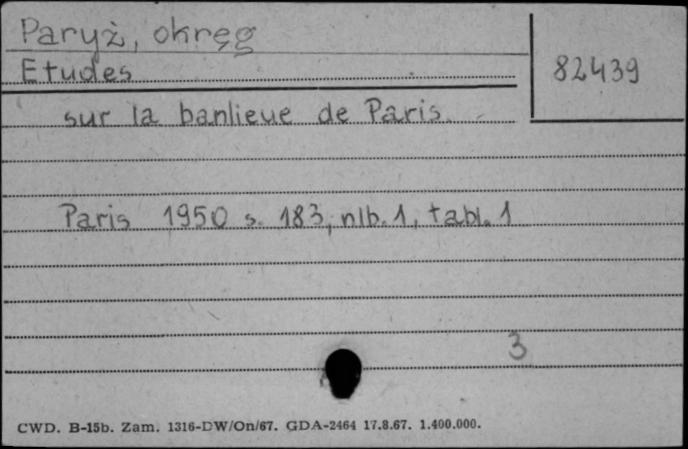 Paryż, okręg
82439
Etudes
sur la banlieue de Paris.
Paris 1950 s. 183, nlb. 1, tabl. 1
3
CWD. B-15b. Zam. 1316-DW/On/67. GDA-2464 17.8.67. 1.400.000.